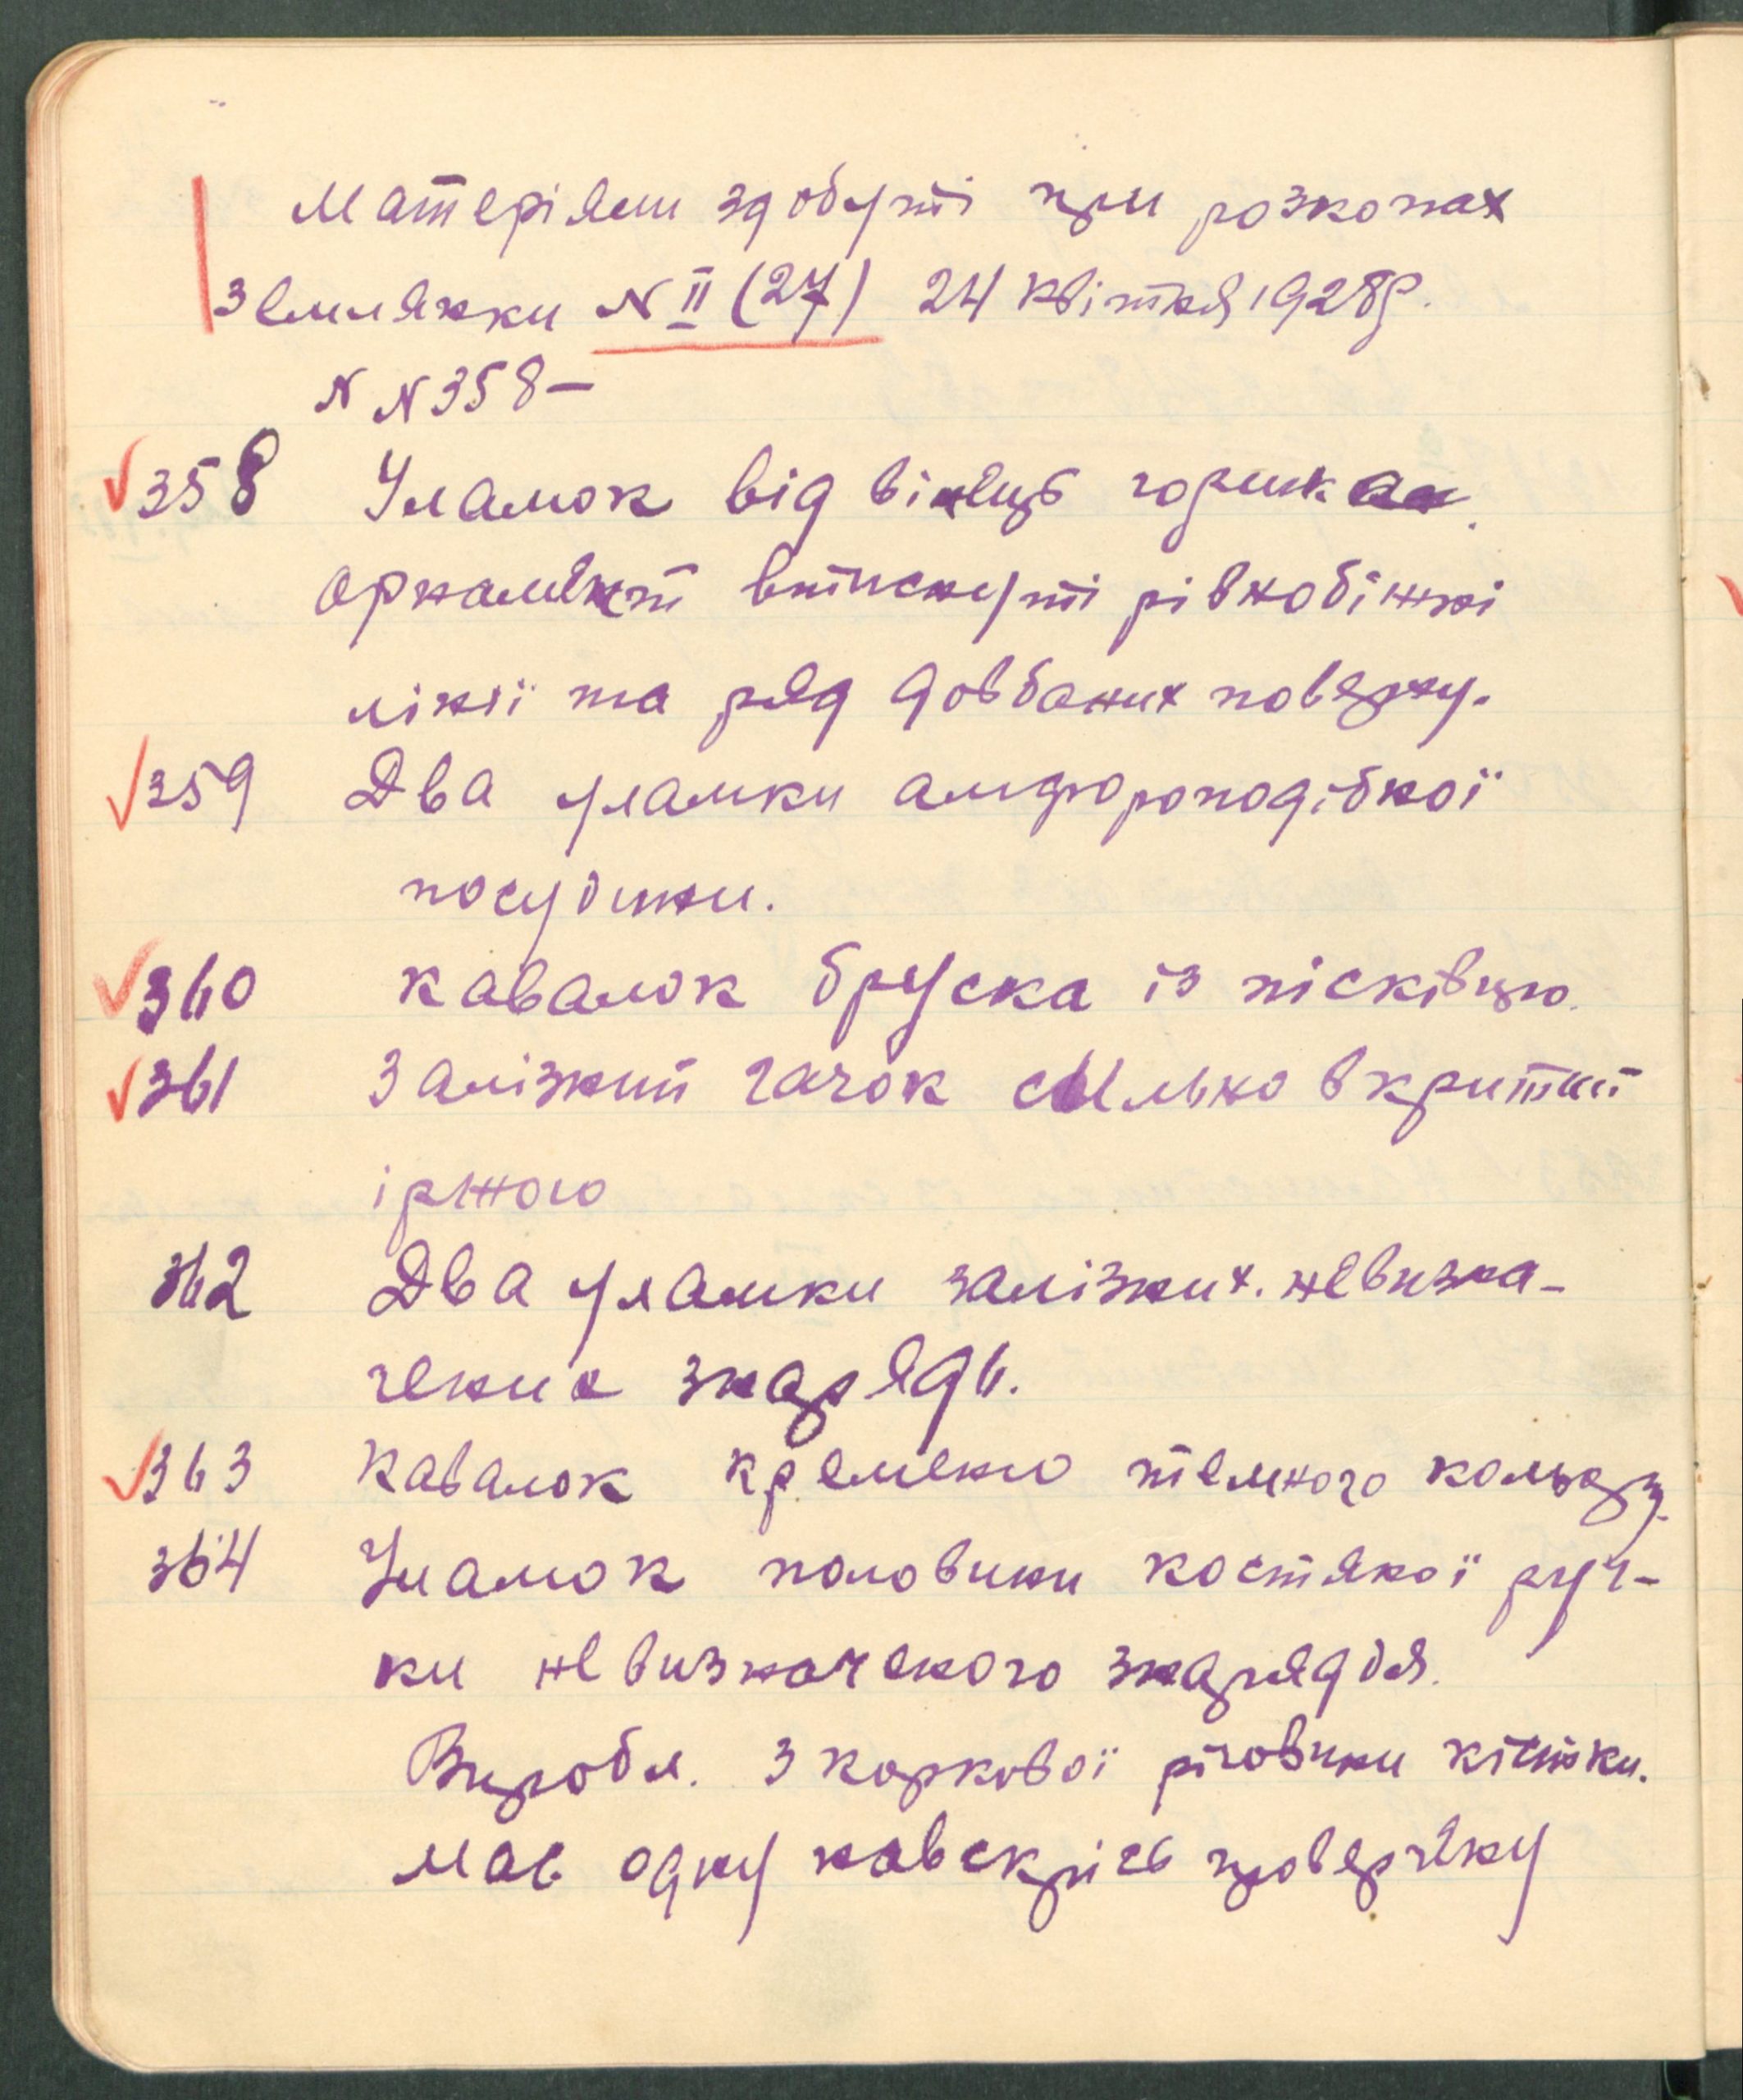 Матеріяли здобуті при розкопах
Землянки N II (27) 24 квітня 1928 р.
N N 358 –
358 Уламок від вінець горшка.
Орнамент втиснуті рівнобіжні
лінії та ряд довбаних поверху.
359 Два уламки амфороподібної
посудини.
360 Кавалок бруска із пісківцю.
361 Залізний гачок сильно вкритий
іржою
362 Два уламки залізних невизна-
чених знарядь.
363 Кавалок кременю темного кольору.
364 Уламок половини костяної руч-
ки невизначеного знаряддя.
Виробл. з коркової річовини кістки.
Має одну навскрізь провернену